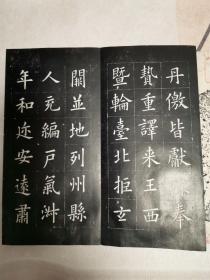 丹徼皆獻琛奉
贄重譯来王西
暨輪臺北拒玄
闕並地列州縣
人充編戸氣淑
年和迩安遠肅